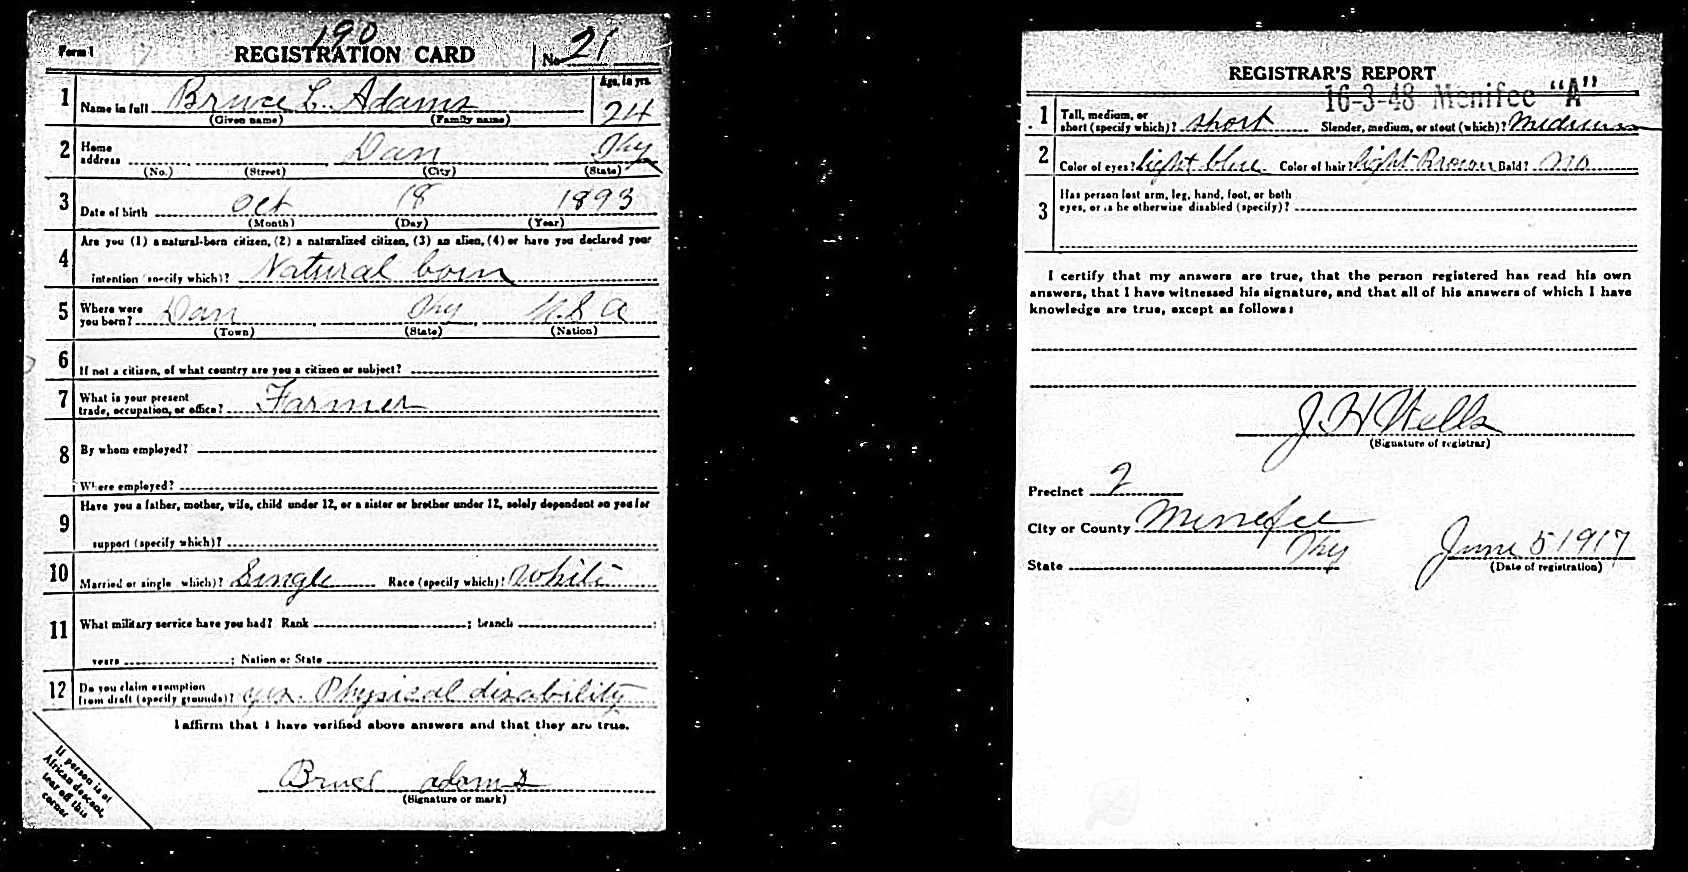 190
Form 1 REGISTRATION CARD No. 21
1 Name in full Bruce L. Adams Age, in yrs. 24
(Given name) (Family name)
2 Home address Dan Ky
(No.) (Street) (City) (State)
3 Date of birth Oct 18 1893
(Month) (Day) (Year)
4 Are you (1) a natural-born citizen, (2) a naturalized citizen, (3) an alien, (4) or have you declared your
intention (specify which)? Natural born
5 Where were you born? Dan Ky U.S.A
(Town) (State) (Nation)
6 If not a citizen, of what country are you a citizen or subject?
7 What is your present
trade, occupation, or office? Farmer
8 By whom employed?
Where employed?
9 Have you a father, mother, wife, child under 12, or a sister or brother under 12, solely dependent on you for
support (specify which)?
10 Married or single (which)? Single Race (specify which)? White
11 What military service have you had? Rank ; branch ;
years ; Nation or State
12 Do you claim exemption
from draft (specify grounds)? yes. Physical disability
I affirm that I have verified above answers and that they are true.
Bruce adams
(Signature or mark)
If person is of
African descent,
tear off this
corner
REGISTRAR'S REPORT
16-3-48 Menifee "A"
1 Tall, medium, or
short (specify which)? short Slender, medium, or stout (which)? medium
2 Color of eyes? light blue Color of hair? light Brown Bald? no
3 Has person lost arm, leg, hand, foot, or both
eyes, or is he otherwise disabled (specify)?
I certify that my answers are true, that the person registered has read his own
answers, that I have witnessed his signature, and that all of his answers of which I have
knowledge are true, except as follows:
J H Wells
(Signature of registrar)
Precinct 2
City or County Menefee
State Ky June 5 1917
(Date of registration)